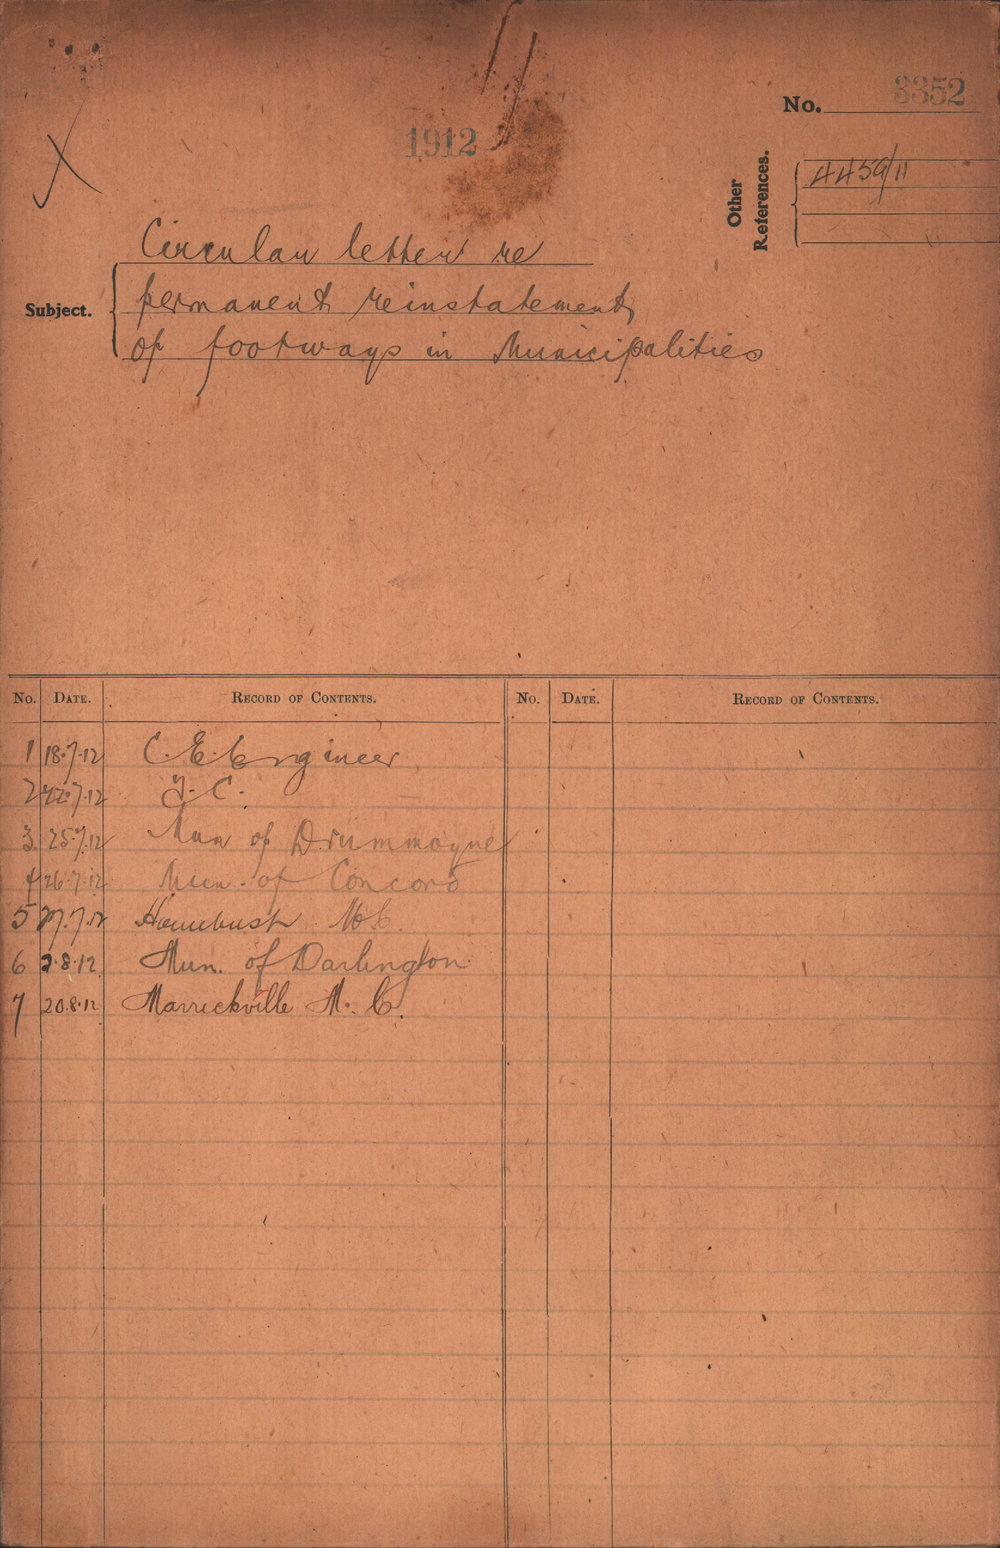 No. 3352
1912
Other References. 4459/11
Subject.
Circular letter re
permanent reinstatement
of footways in Municipalities
No. DATE. RECORD OF CONTENTS. No. DATE. RECORD OF CONTENTS.
1 18.7.12 C. E. Engineer
2 22.7.12 T. C.
3 25.7.12 Mun of Drummoyne
4 26.7.12 Mun. of Concord
5 27.7.12 Homebush M C.
6 2.8.12 Mun. of Darlington
7 20.8.12 Marrickville M. C.